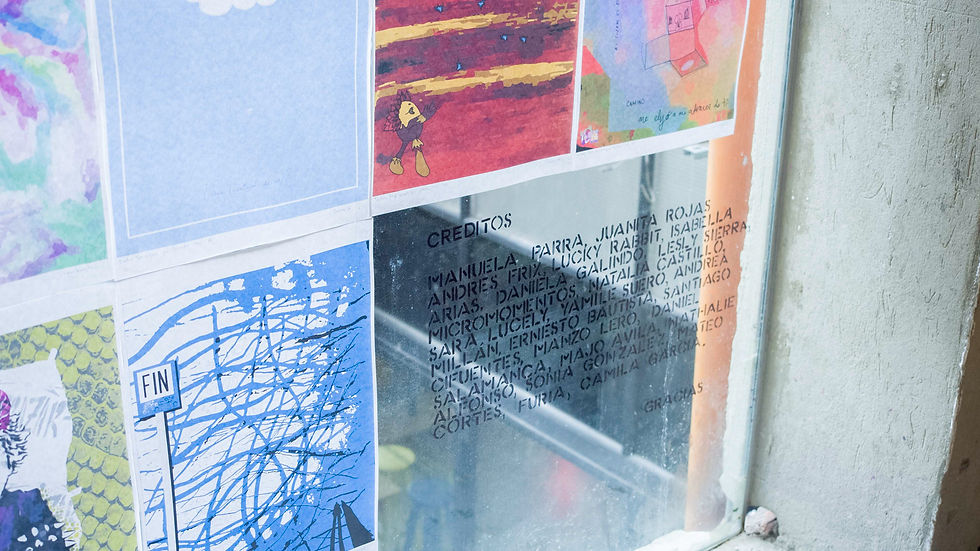 CAMINO
me
CREDITOS
MANUELA, PARRA, JUANITA ROJAS
ANDRES FRIX, LUCKY RABBIT, ISABELLA
ARIAS, DANIELA GALINDO, LESLY SIERRA,
MICROMOMENTOS, NATALIA CASTILLO,
SARA, LUCELY YAMILE SUERO, ANDREA
MILLAN, ERNESTO BAUTISTA, SANTIAGO
CIFUENTES, MANZO LERO, DANIEL
SALAMANCA, MAJO AVILA, NATHALIE
ALFONSO, SONIA GONZALEZ, MATEO
CORTES, FURIA, CAMILA GARCIA.
GRACIAS
FIN